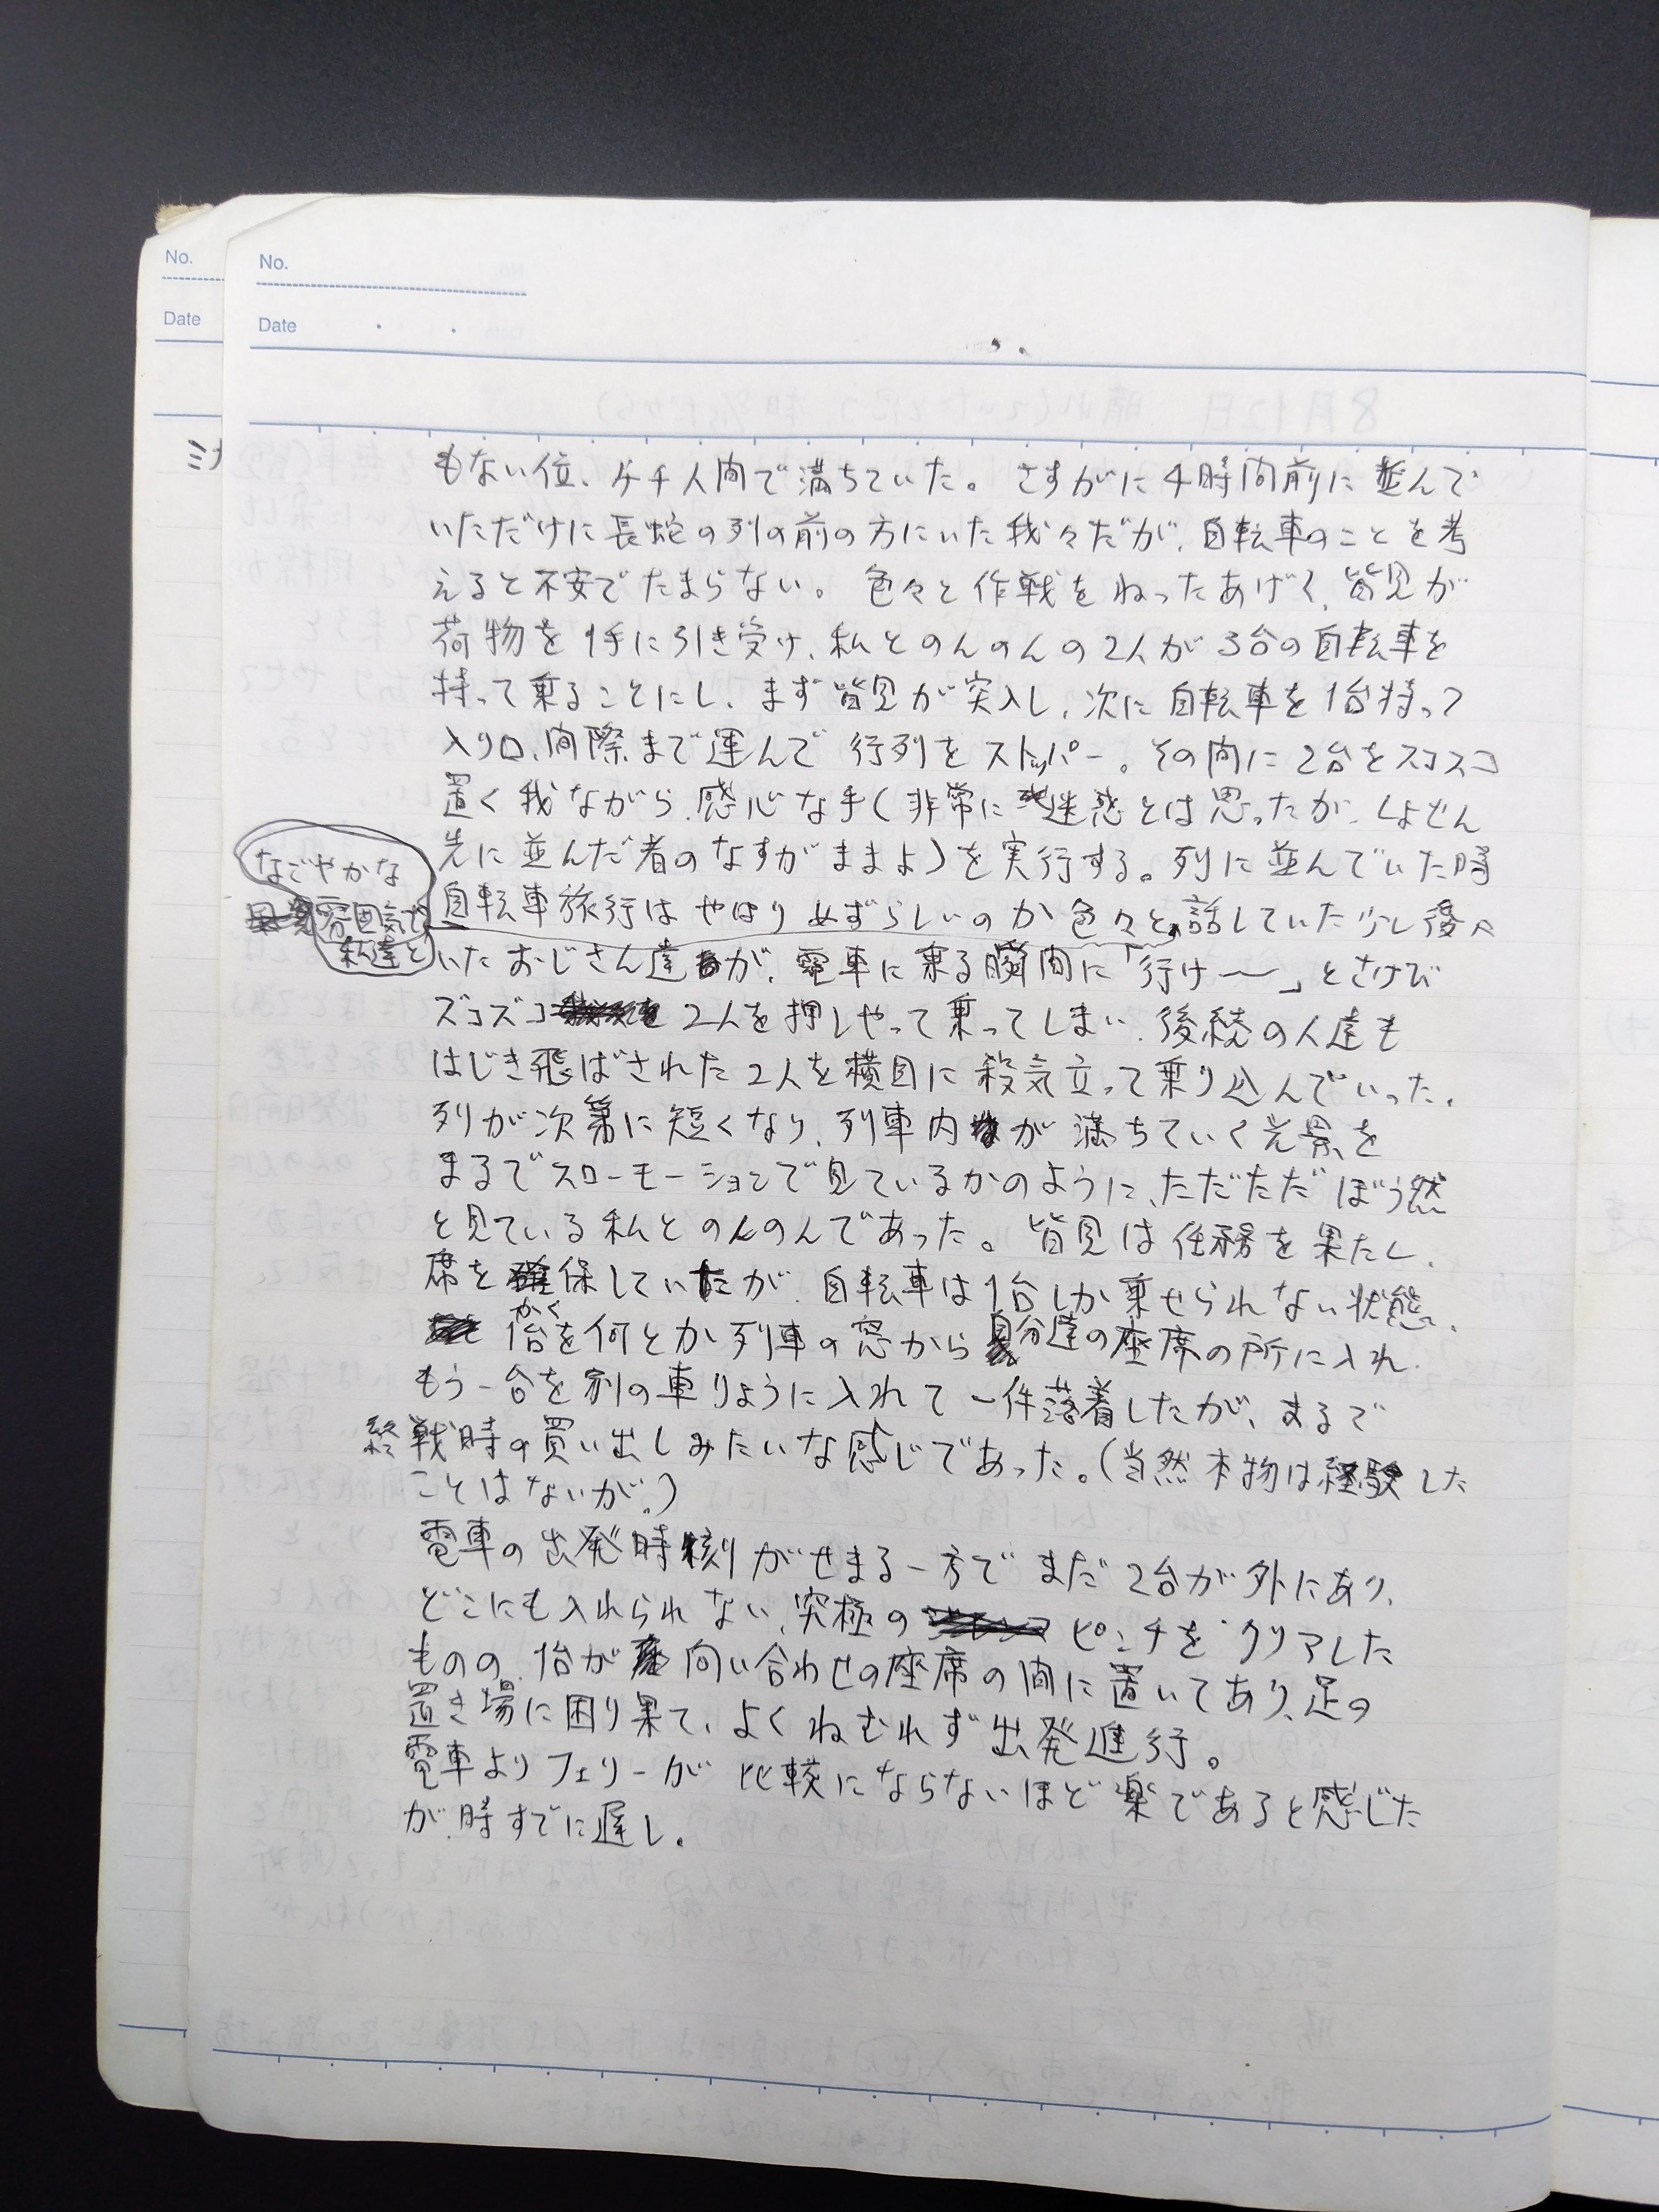 No.
Date
No.
Date
もない位、ケチ人間で満ちていた。さすがに4時間前に並んで
いただけに長蛇の列の前の方にいた我々だが、自転車のことを考
えると不安でたまらない。色々と作戦をねったあげく、皆見が
荷物を1手に引き受け、私とのんのんの2人が3台の自転車を
持って乗ることにし、まず皆見が突入し、次に自転車を1台持って
入り口、間際まで運んで行列をストッパー。その間に2台をスコスコ
置く我ながら、感心な手(非常に迷惑とは思ったが、しょせん
先に並んだ者のなすがままよ)を実行する。列に並んでいた時
自転車旅行はやはりめずらしいのか色々と話していた少し後へ
なごやかな
雰囲気で
私達と
いたおじさん達が、電車に乗る瞬間に「行けー」とさけび
ズコズコ2人を押しやって乗ってしまい、後続の人達も
はじき飛ばされた2人を横目に殺気立って乗り込んでいった。
列が次第に短くなり、列車内が満ちていく光景を
まるでスローモーションで見ているかのように、ただただぼう然
と見ている私とのんのんであった。皆見は任務を果たし、
席を確保していたが、自転車は1台しか乗せられない状態、
かく
1台を何とか列車の窓から自分達の座席の所に入れ、
もう一台を別の車りょうに入れて一件落着したが、まるで
終戦時の買い出しみたいな感じであった。(当然本物は経験した
ことはないが。)
電車の出発時刻がせまる一方でまだ2台が外にあり、
どこにも入れられない、究極のピンチをクリアした
ものの、1台が向い合わせの座席の間に置いてあり、足の
置き場に困り果て、よくねむれず出発進行。
電車よりフェリーが比較にならないほど楽であると感じた
が、時すでに遅し。